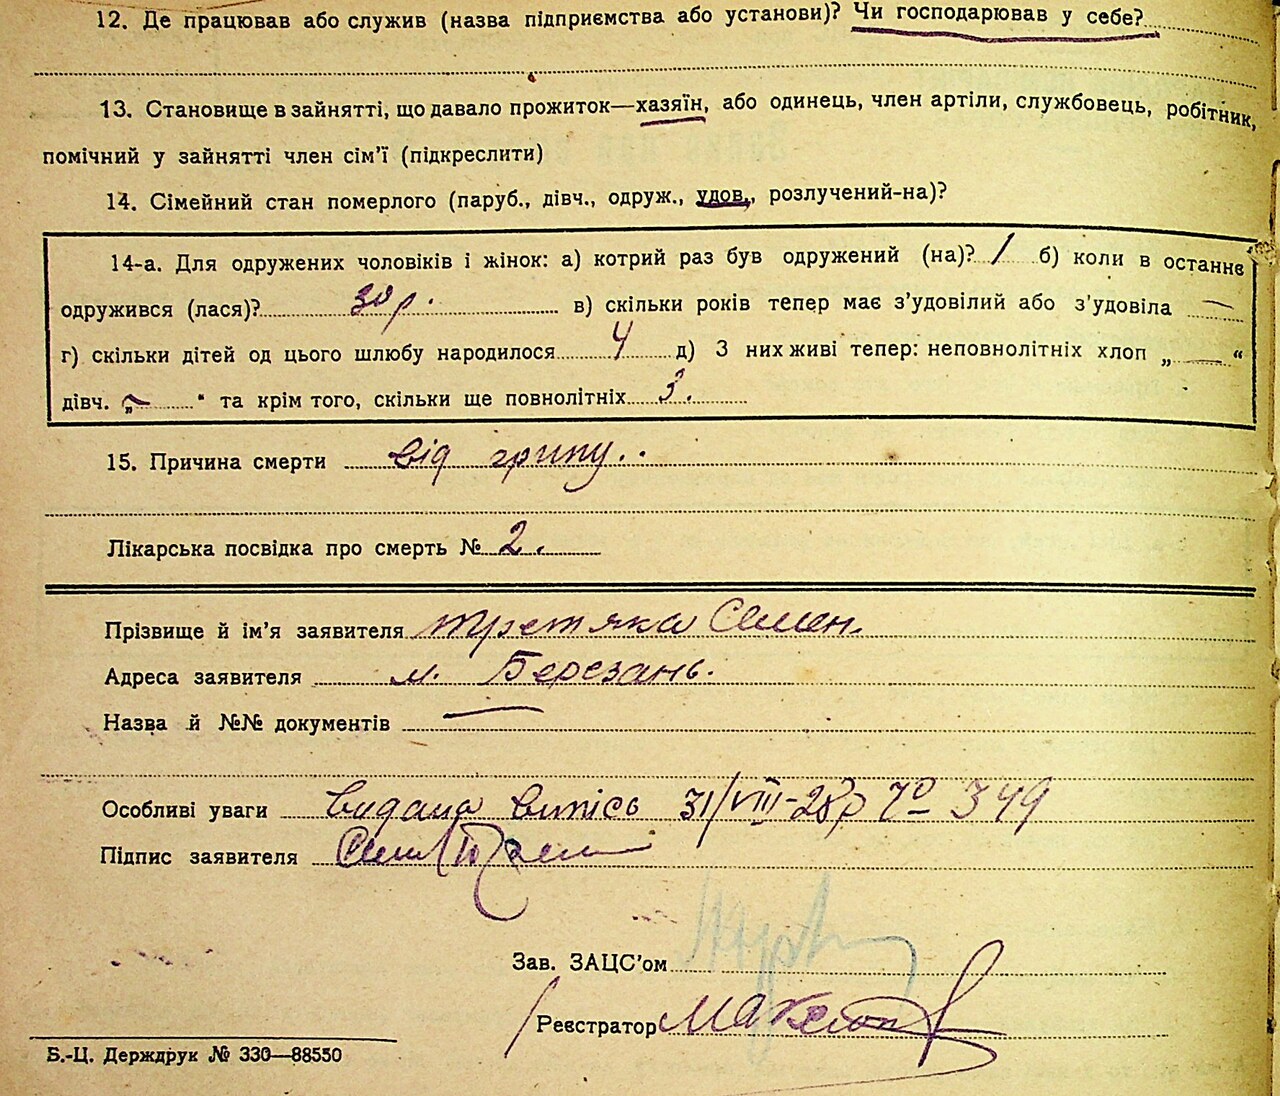 12. Де працював або служив (назва підприємства або установи)? Чи господарював у себе?
13. Становище в зайнятті, що давало прожиток—хазяїн, або одинець, член артіли, службовець, робітник,
помічний у зайнятті член сім'ї (підкреслити)
14. Сімейний стан померлого (паруб., дівч., одруж., удов., розлучений-на)?
14-а. Для одружених чоловіків і жінок: а) котрий раз був одружений (на)? 1 б) коли в останнє
одружився (лася)? 30 р. в) скільки років тепер має з'удовілий або з'удовіла —
г) скільки дітей од цього шлюбу народилося 4 д) З них живі тепер: неповнолітніх хлоп „—“
дівч. „—“ та крім того, скільки ще повнолітніх 3.
15. Причина смерти від грипу..
Лікарська посвідка про смерть № 2.
Прізвище й ім'я заявителя Третяка Семен.
Адреса заявителя м. Березань.
Назва й №№ документів —
Особливі уваги видана випісь 31/VIII-28р № 349
Підпис заявителя
Зав. ЗАЦС'ом
Реєстратор
Б.-Ц. Держдрук № 330—88550